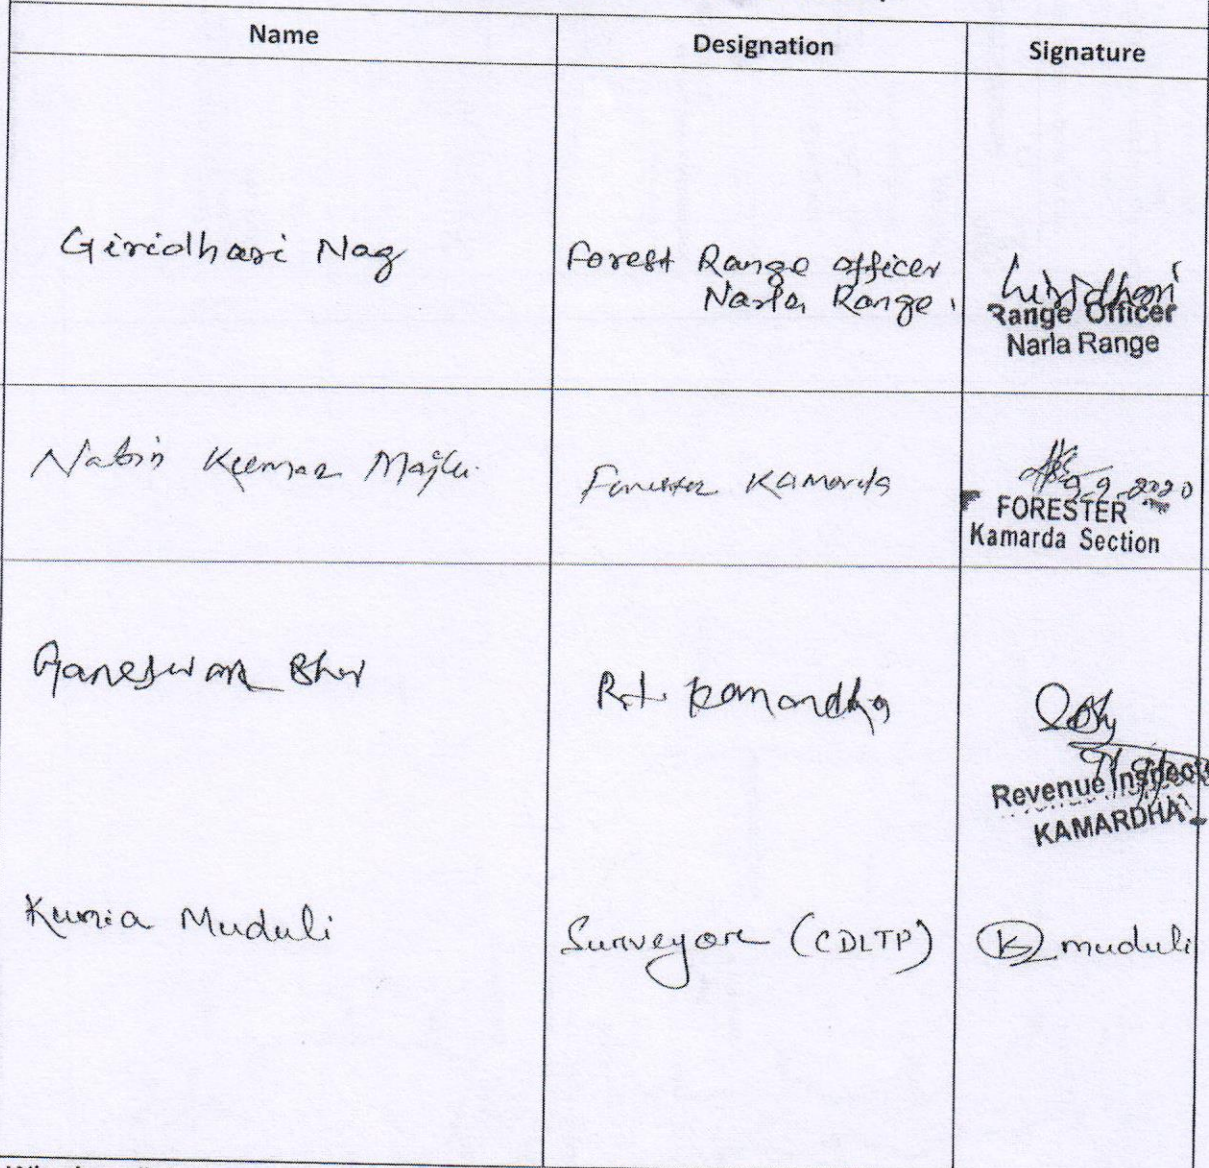 Name Designation Signature
Giridhari Nag Forest Range officer
Narla Range. Giridhari
Range Officer
Narla Range
Nabin Kumar Majhi Forester Kamarda
9.9.2020
FORESTER
Kamarda Section
R.I. Kamardha
Revenue Inspecto
KAMARDHA
Kunia Muduli Surveyore (CDLTP) K muduli